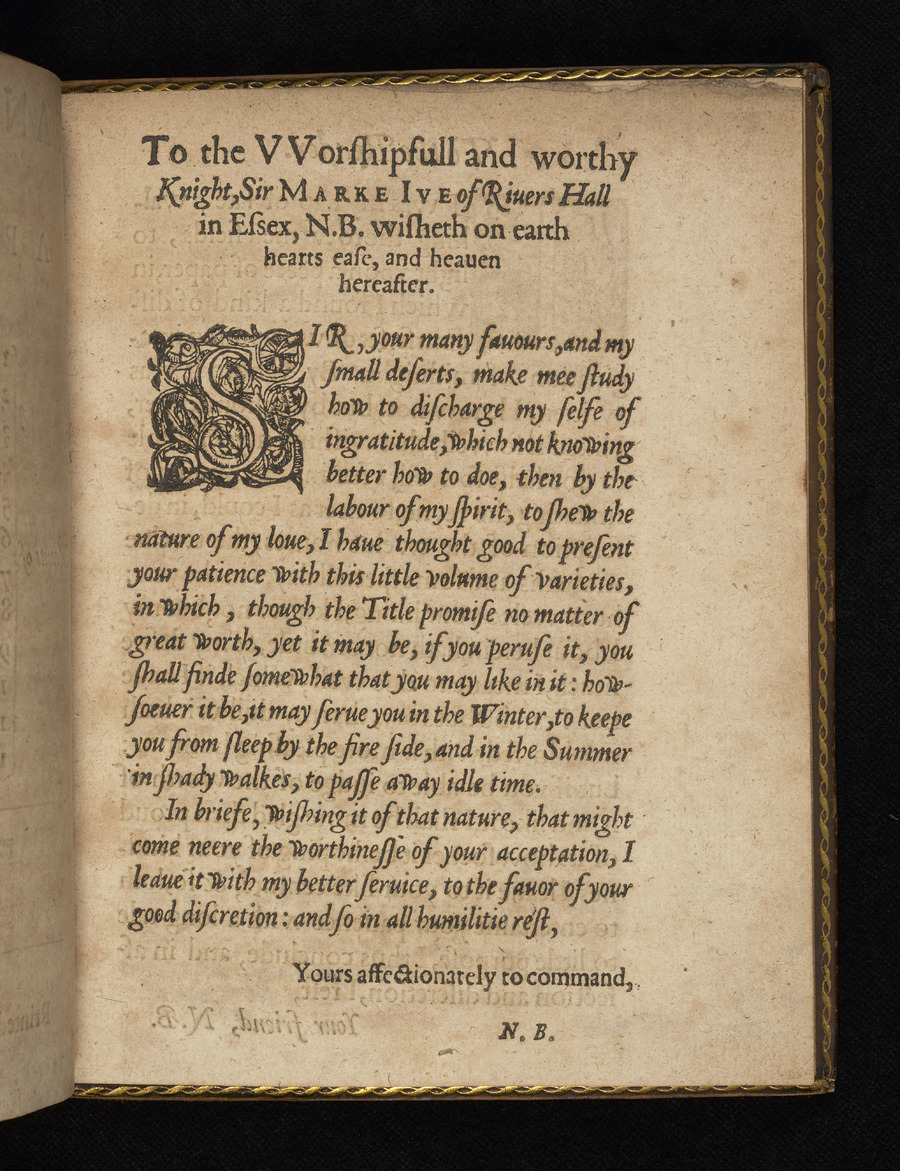 To the VVorſhipfull and worthy
Knight, Sir MARKE IVE of Riuers Hall
in Eſſex, N.B. wiſheth on earth
hearts eaſe, and heauen
hereafter.
SIR, your many fauours, and my
ſmall deſerts, make mee ſtudy
how to diſcharge my ſelfe of
ingratitude, which not knowing
better how to doe, then by the
labour of my ſpirit, to ſhew the
nature of my loue, I haue thought good to preſent
your patience with this little volume of varieties,
in which , though the Title promiſe no matter of
great worth, yet it may be, if you peruſe it, you
ſhall finde ſomewhat that you may like in it : how-
ſoeuer it be, it may ſerue you in the Winter, to keepe
you from ſleep by the fire ſide, and in the Summer
in ſhady walkes, to paſſe away idle time.
In briefe, wiſhing it of that nature, that might
come neere the worthineſſe of your acceptation, I
leaue it with my better ſeruice, to the fauor of your
good diſcretion : and ſo in all humilitie reſt,
Yours affectionately to command,
N. B.